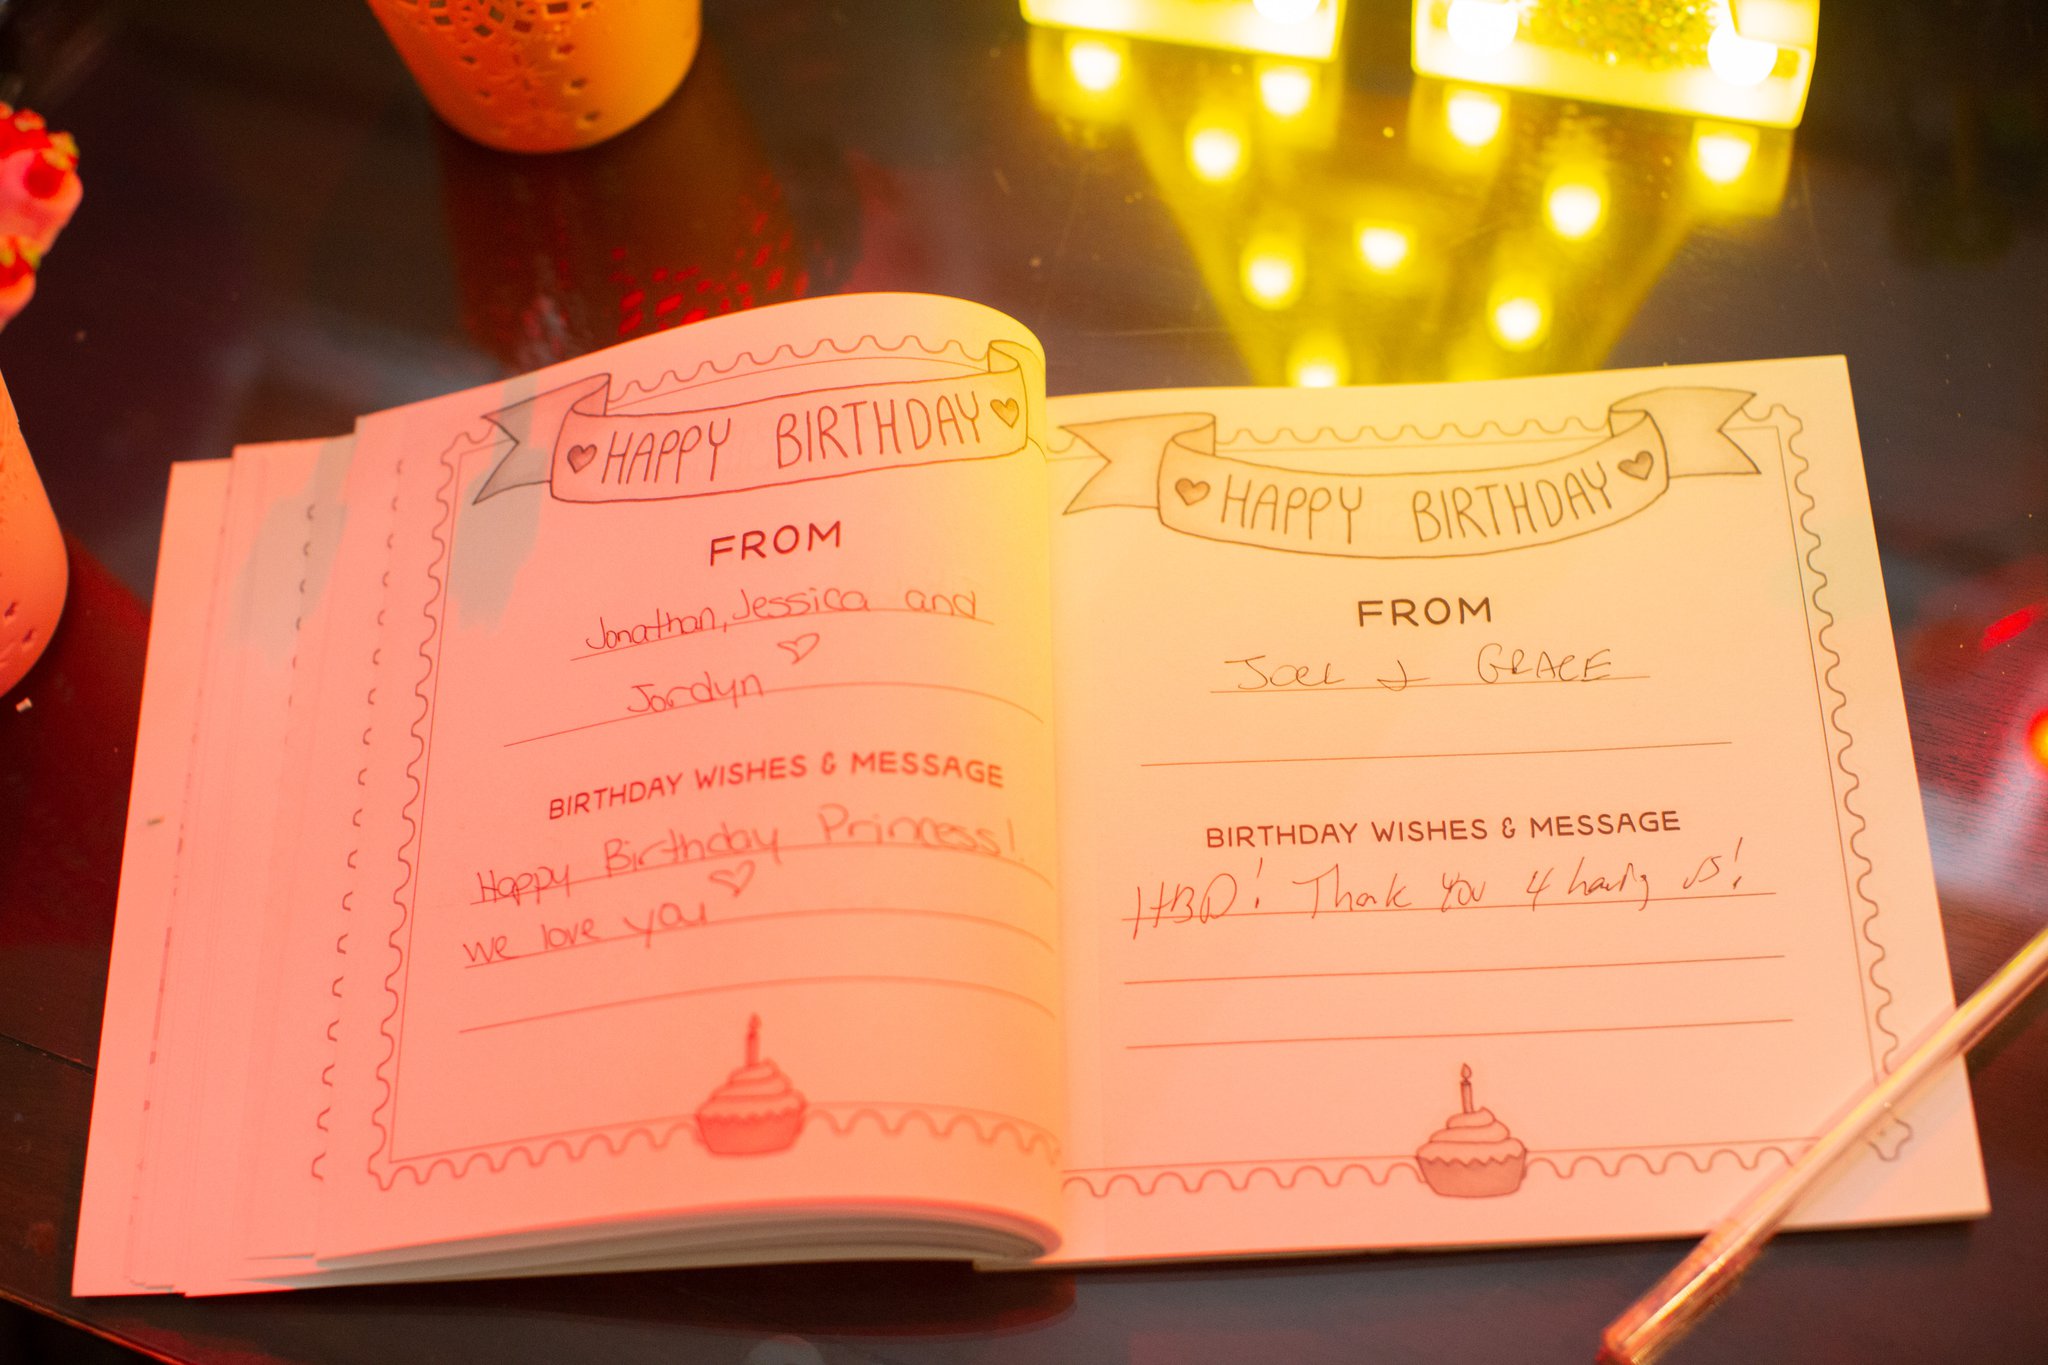 HAPPY BIRTHDAY
FROM
Jonathan, Jessica and
Jordyn
BIRTHDAY WISHES & MESSAGE
Happy Birthday Princess!
we love you
HAPPY BIRTHDAY
FROM
JOEL & GRACE
BIRTHDAY WISHES & MESSAGE
HBD! Thank you 4 having us!